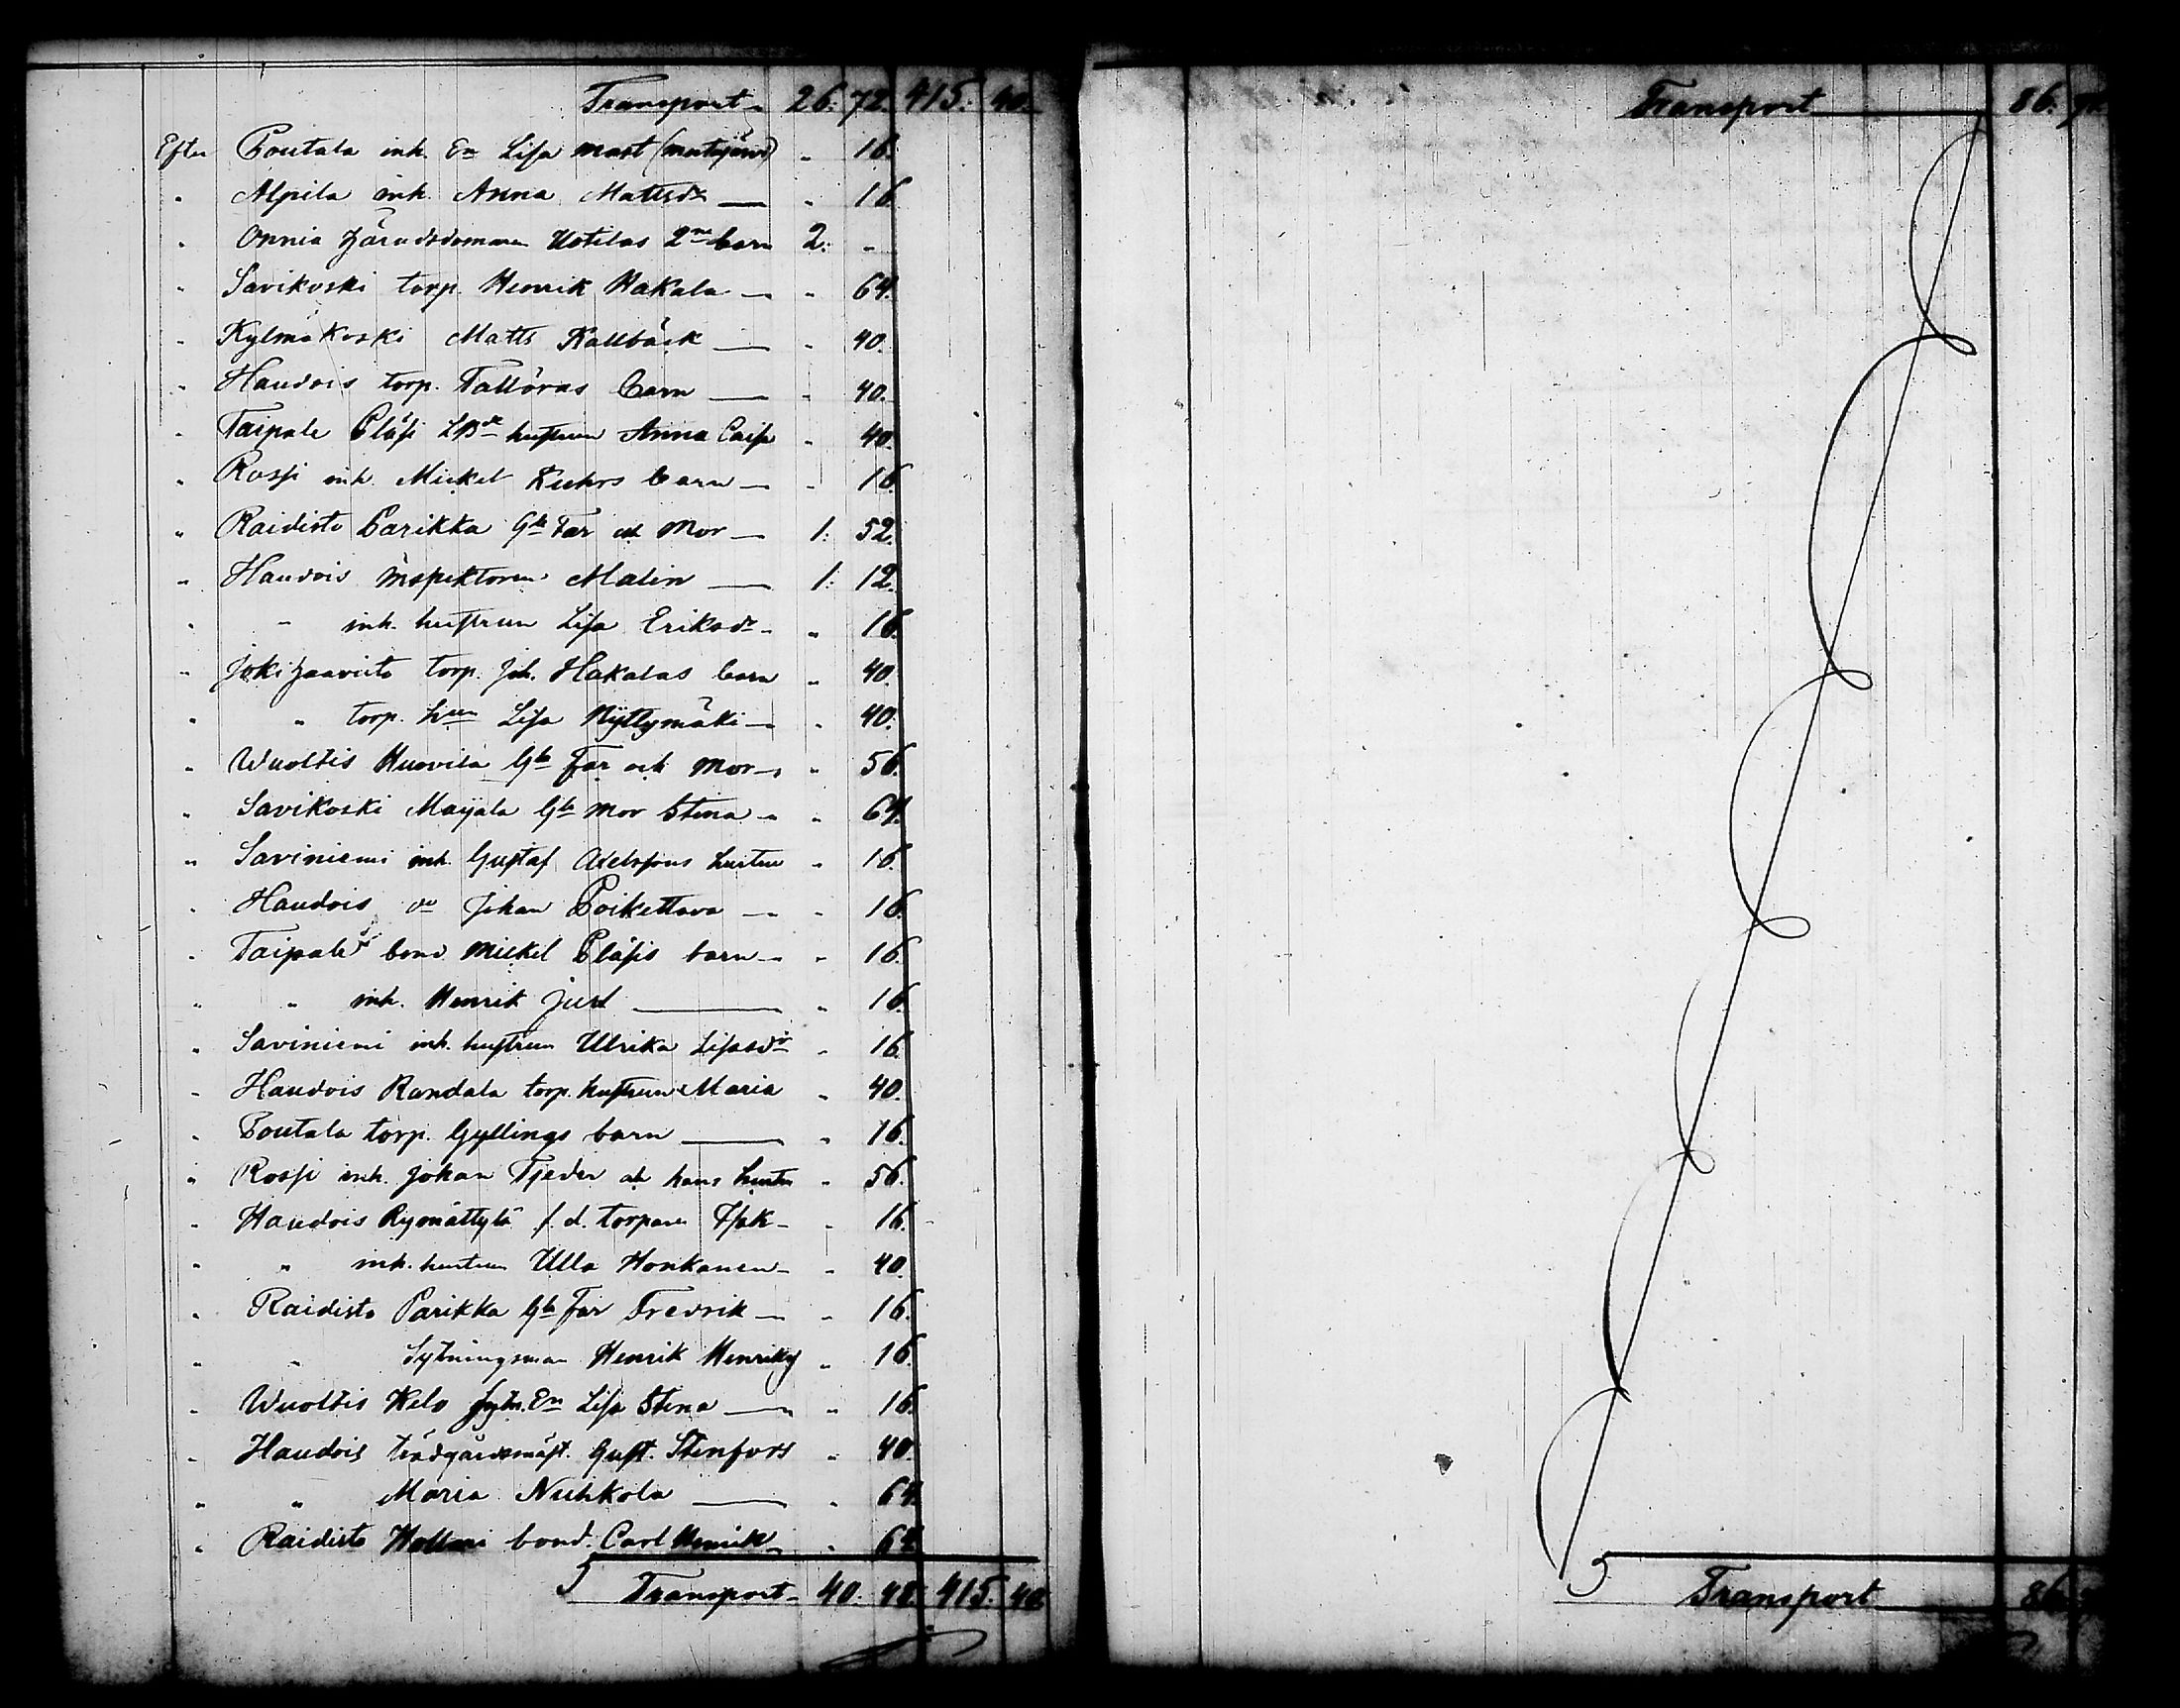 Transport 26: 72. 415: 40.
Efter Poutala inh. En Lisa Mart (Mutijärvi) " 16.
" Alpila inh. Anna Mattsdr — " 16
" Onnia häradsdomaren Uotilas 2ne barn 2: "
" Savikoski torp. Henrik Hakala — " 64.
" Kylmäkoski Matts Kallbäck — " 40.
" Haudois torp. Tallörns barn — " 40.
" Taipale Pläsi hustrun Anna Caisa " 40
" Rossi inh. Mickel barn — " 16.
" Raidisto Parikka Gla Far och Mor — 1: 52.
" Haudois Inspektoren Malin — 1: 12.
" " inh. hustrun Lisa Eriksdr " 16.
" Jokihaavisto torp. Joh. Hakalas barn " 40.
" " torp. hun Lisa Nyttymäki — " 40.
" Wuoltis Huovila Gla Far och Mor — " 56.
" Savikoski Maijala Gla Mor Stina " 64.
" Saviniemi inh. Gustaf Adelssons hustru " 16.
" Haudois do Johan Poikettava — " 16.
" Taipale bond. Mickel Pläsis barn — " 16.
" " inh. Henrik Just — " 16.
" Saviniemi inh. hustrun Ulrika " 16.
" Haudois Randala torp. hustrun Maria " 40.
" Poutala torp. Gyllings barn — " 16.
" Rossi inh. Johan Tjeder och hans hustru " 56.
" Haudois Rymättylä f.d. torparen Isak — " 16.
" " inh. hustrun Ulla Honkanen — " 40.
" Raidisto Parikka Gla Far Fredrik — " 16.
" " Sytningsman Henrik Henriks " 16.
" Wuoltis Kelo En Lisa Stina — " 16.
" Haudois trädgårdsmäst. Gust. Stenfors " 40.
" " Maria Nuhkola — " 64.
" Raidisto Hollari bond. Carl Henrik — " 64.
Transport 40: 48. 415: 40
Transport 86.
Transport 86.